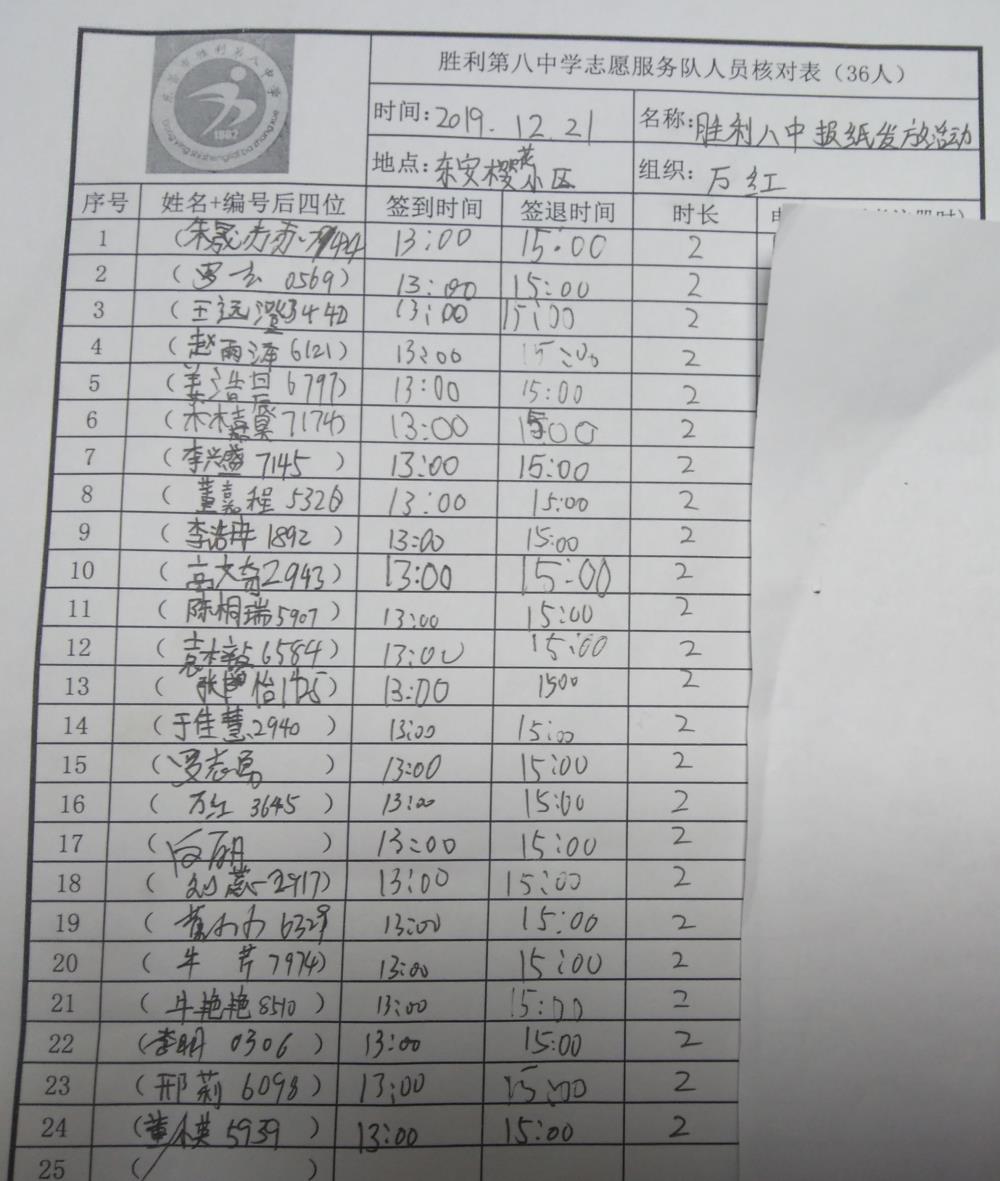 胜利第八中学志愿服务队人员核对表（36人）
时间:2019.12.21 名称:胜利八中报纸发放活动
地点:东安樱花小区 组织:万红
序号 姓名+编号后四位 签到时间 签退时间 时长
1 (朱晟 13:00 15:00 2
2 (罗玄 0569) 13:00 15:00 2
3 (王远澄 13:00 15:00 2
4 (赵雨泽 6121) 13:00 15:00 2
5 ( 6797) 13:00 15:00 2
6 ( 7174) 13:00 15:00 2
7 (李兴盛 7145 ) 13:00 15:00 2
8 (董嘉程 532 ) 13:00 15:00 2
9 (李浩冉 1892 ) 13:00 15:00 2
10 (高文奇2943) 13:00 15:00 2
11 (陈桐瑞5907) 13:00 15:00 2
12 (袁 6584) 13:00 15:00 2
13 (张 怡 ) 13:00 1500 2
14 (于佳慧2940 ) 13:00 15:00 2
15 (罗志勇 ) 13:00 15:00 2
16 (万红 3645 ) 13:00 15:00 2
17 ( 丽 ) 13:00 15:00 2
18 (刘 2917) 13:00 15:00 2
19 ( 632 ) 13:00 15:00 2
20 (牛芹 7974) 13:00 15:00 2
21 (牛艳艳 8510 ) 13:00 15:00 2
22 (李明 0306 ) 13:00 15:00 2
23 (邢莉 6098) 13:00 15:00 2
24 (董 英 5939 ) 13:00 15:00 2
25 ( )